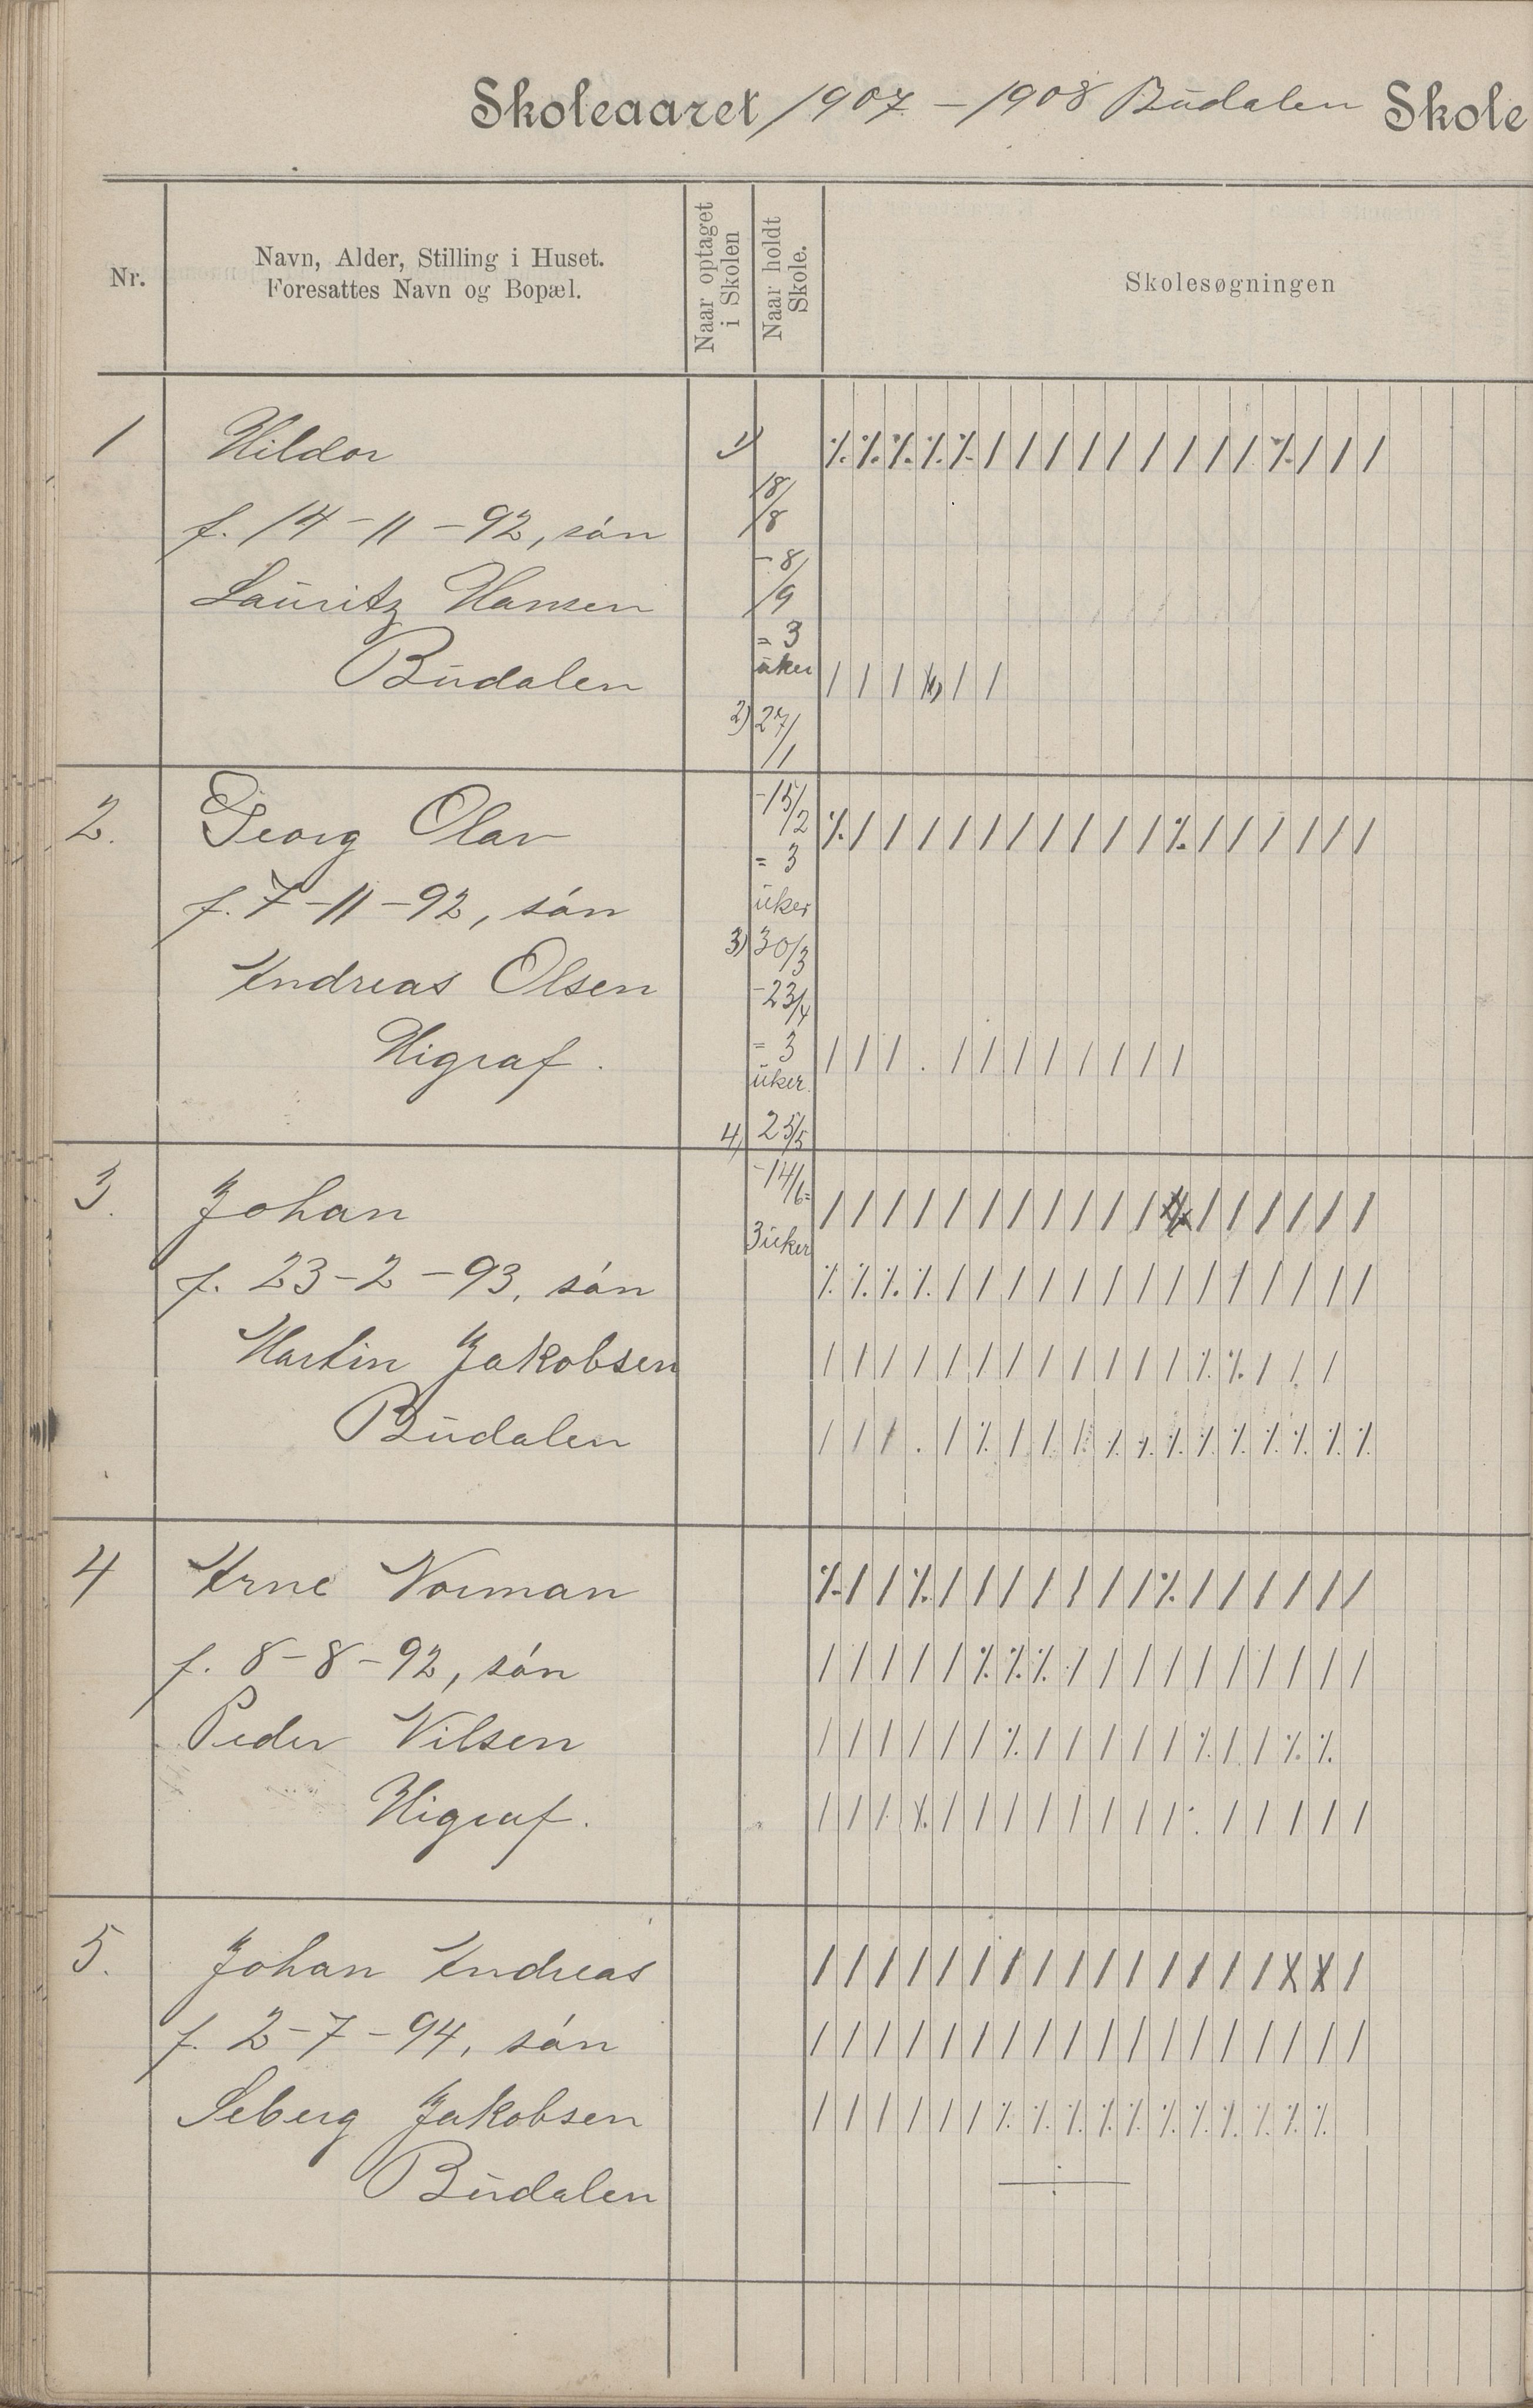 Skoleaaret 1907 - 1908 Budalen Skole
Nr.
Navn, Alder, Stilling i Huset.
Foresattes Navn og Bopæl.
Naar optaget
i Skolen
Naar holdt
Skole.
Skolesøgningen
1
Hildor
f. 14-11-92, són
Lauritz Hansen
Budalen
1)
18/8
-8/9
= 3
uker
2) 27/1
-15/2
= 3
uker
3) 30/3
-23/4
= 3
uker
4) 25/5
-14/6=
3 uker
2.
Georg Olav
f. 7-11-92, són
Andreas Olsen
Higraf.
3.
Johan
f. 23-2-93, són
Martin Jakobsen
Budalen
4
Arne Norman
f. 8-8-92, són
Peder Nilsen
Higraf.
5.
Johan Andreas
f. 2-7-94, són
Seberg Jakobsen
Budalen